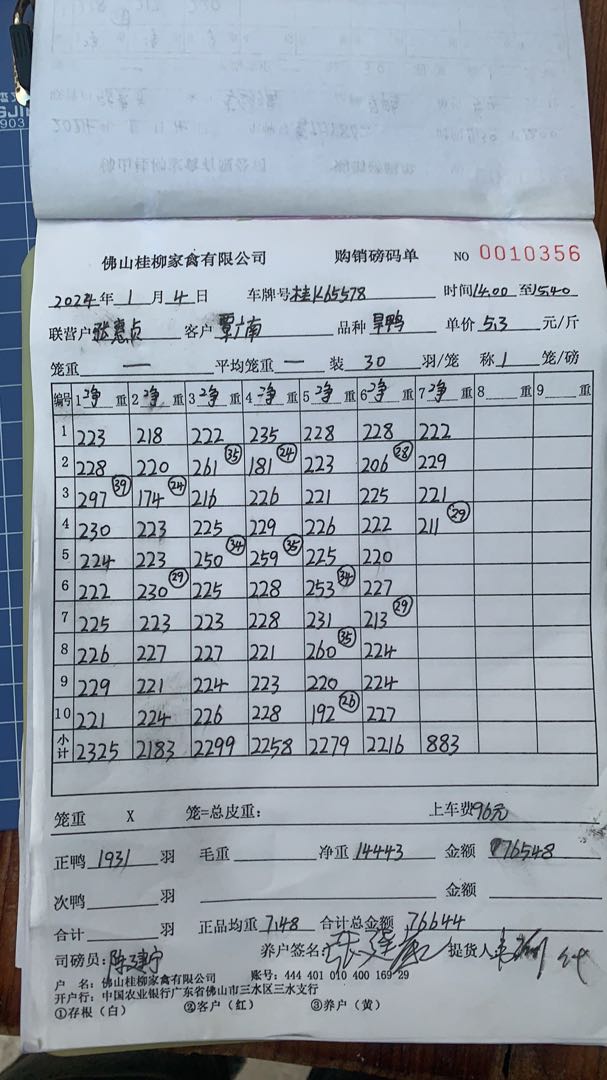 佛山桂柳家禽有限公司 购销磅码单 NO 0010356
2024年 1 月 4 日 车牌号 桂K65578 时间 14:00 至 1540
联营户 张惠贞 客户 覃广南 品种 旱鸭 单价 5.3 元/斤
笼重 — 平均笼重 — 装 30 羽/笼 称 1 笼/磅
编号 1 净 重 2 净 重 3 净 重 4 净 重 5 净 重 6 净 重 7 净 重 8 重 9 重
1 223 218 222 235 228 228 222
2 228 220 261 (35) 181 (24) 223 206 (28) 229
3 297 (39) 174 (24) 216 226 221 225 221
4 230 223 225 229 226 222 211 (29)
5 224 223 250 (34) 259 (35) 225 220
6 222 230 (29) 225 228 253 (34) 227
7 225 223 223 228 231 213 (29)
8 226 227 227 221 260 (35) 224
9 229 221 224 223 220 224
10 221 224 226 228 192 (26) 227
小计 2325 2183 2299 2258 2279 2216 883
笼重 X 笼=总皮重： 上车费 96元
正鸭 1931 羽 毛重 净重 14443 金额 76548
次鸭 羽 金额
合计 羽 正品均重 7.48 合计总金额 76644
司磅员： 养户签名： 提货人
户 名：佛山桂柳家禽有限公司 账号：444 401 010 400 169 29
开户行：中国农业银行广东省佛山市三水区三水支行
①存根（白） ②客户（红） ③养户（黄）